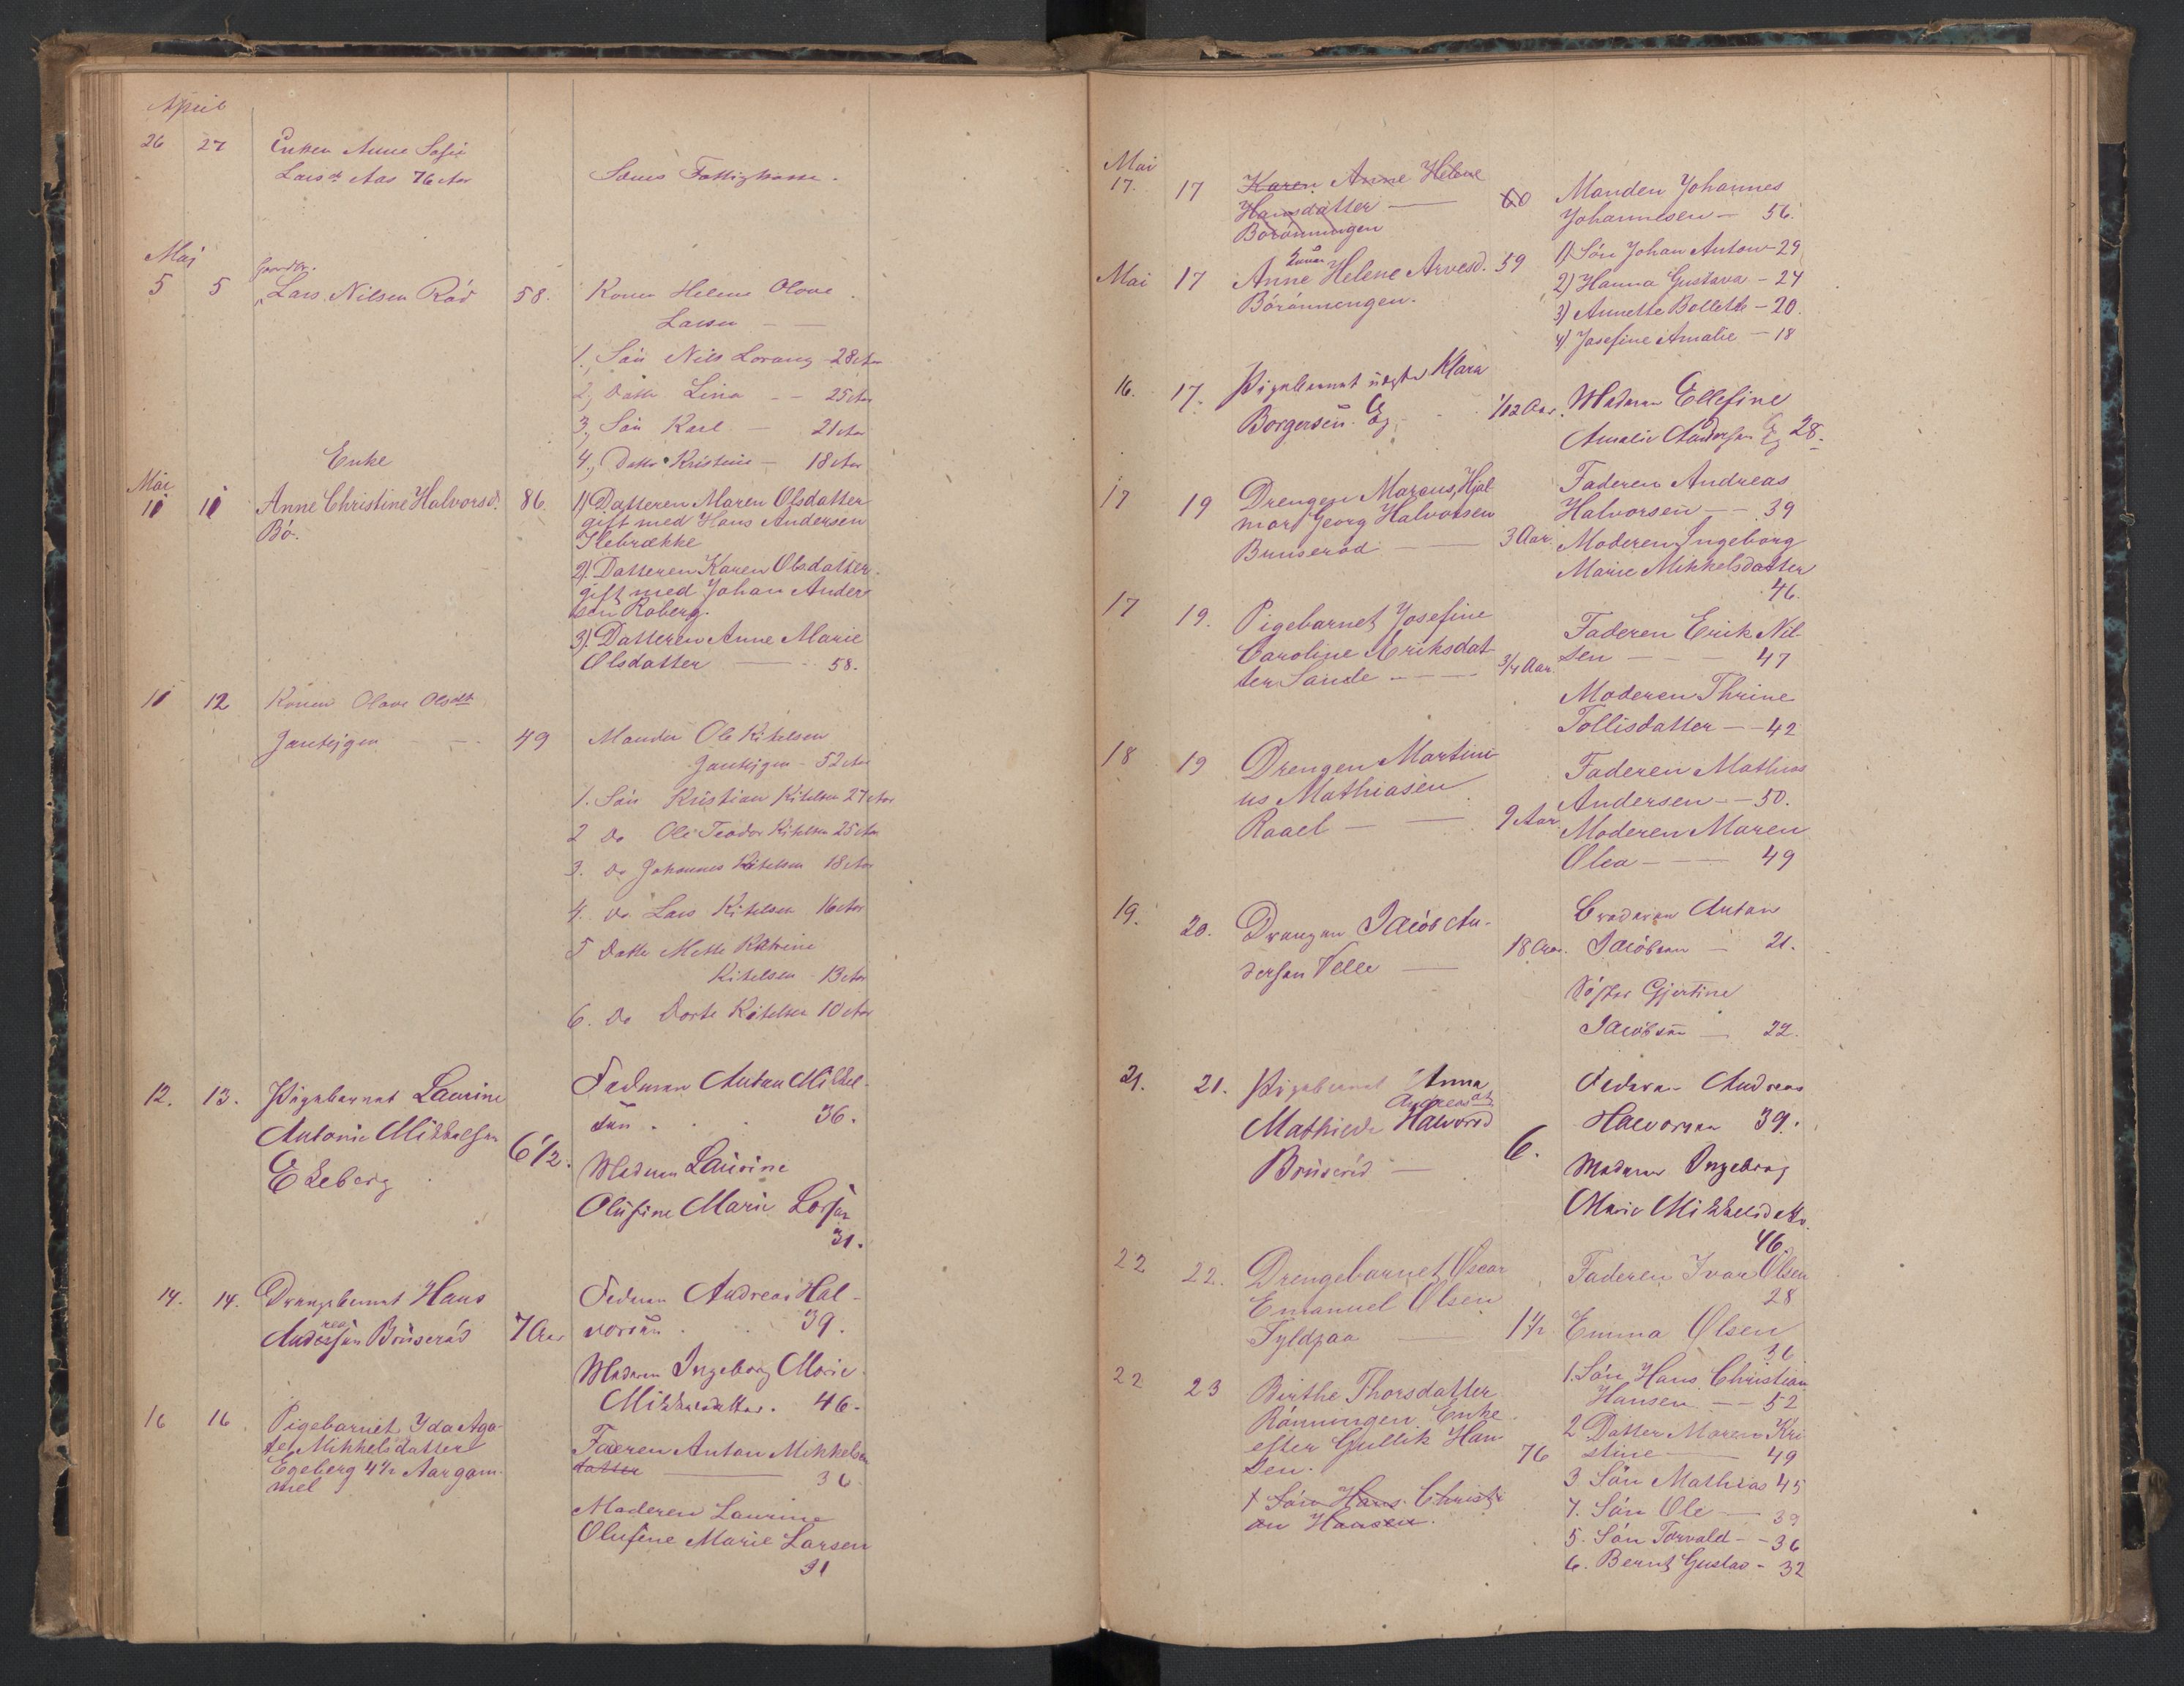 April
26 27 Enken Anne Sofie
Larsdt Aas 76 Aar Sems Fattigkasse.
Mai
5 5 Gaardbr.
Lars Nilsen Röd 58. Konen Helene Olove
Larsen
1, Sön Nils Lorang 28 Aar
2, Datter Lina 25 Aar
3, Sön Karl 21 Aar
4, Datter Kristine 18 Aar
Mai Enke
11 11 Anne Christine Halvorsd. 86. 1) Datteren Maren Olsdatter
Bö. gift med Hans Andersen
Ilebrække
2). Datteren Karen Olsdatter
gift med Johan Ander
sen Roberg.
3). Datteren Anne Marie
Olsdatter — 58.
11 12 Konen Olave Olsdtr
Jarteigen 49 Manden Ole Kitelsen
Jarteigen - 52 Aar
1. Sön Kristian Kitelsen 27 Aar
2 Do Ole Teodor Kitelsen 25 Aar
3. Do Johannes Kitelsen 18 Aar
4. Do Lars Kitelsen 16 Aar
5 Datter Mette Katrine
Kitelsen 13 Aar
6. Do Dorte Kitelsen 10 Aar
12. 13. Pigebarnet Laurine Faderen Anton Mikkel-
Antonie Mikkelsen sen . . 36.
Ekeberg 6 1/2. Moderen Laurine
Olufine Marie Larsen
31.
14. 14. Drengebarnet Hans Faderen Andreas Hal-
Andreasen Bruseröd 7 Aar vorsen . . 39.
Moderen Ingeborg Marie
Mikkelsdatter. 46.
16 16 Pigebarnet Yda Aga-
te Mikkelsdatter Faderen Anton Mikkelsen
Egeberg 4 1/2 Aar gam- datter — 36
mel
Moderen Laurine
Olufine Marie Larsen
31
Mai
17. 17 Karen Anne Helene 60 Manden Johannes
Hansdatter — Johannesen — 56.
Börönningen
Mai 17 Konen
Anne Helene Arvesd. 59 1) Sön Johan Anton - 29
Börönnengen. 2) Hanna Gustava - 24
3) Annette Bollette - 20.
4) Josefine Amalie - 18
16. 17. Pigebarnet Klara
Borgersen Eg 1/12 Aar. Moderen Ellefine
Amalie Andersen Eg 28.
17 19 Drengen Marcus Hjal- Faderen Andreas
mar Georg Halvorsen Halvorsen — 39
Bruseröd — 3 Aar. Moderen Ingeborg
Marie Mikkelsdatter
46.
17 19. Pigebarnet Josefine Faderen Erik Nil-
Caroline Eriksdat- sen — 47
ter Sande — 3/4 Aar.
Moderen Thrine
Tollisdatter — 42
18 19 Drengen Martini- Faderen Mathias
us Mathiasen Andersen — 50.
Raael — 9 Aar Moderen Maren
Olea — 49
19. 20. Drengen Jacob An- Broderen Anton
dersen Velle — 18 Aar. Jacobsen — 21.
Söster Gjertine
Jacobsen — 22.
21. 21. Pigebarnet Anna Faderen Andreas
Andreasdt
Mathilde Halvorsd Halvorsen 39.
Bruseröd — 6. Moderen Ingeborg
Marie Mikkelsdatter.
46.
22 22. Drengebarnet Oscar Faderen Ivar Olsen
Emanuel Olsen 28
Fyldpaa — 1 1/2 Emma Olsen
31
22 23 Birthe Thorsdatter 1. Sön Hans Christian
Rönningen Enke Hansen — 52
efter Gullik Han 2 Datter Maren Kri
sen. 76 stine — 49
1 Sön Hans Christi 3 Sön Mathias 45
an Hansen. 4. Sön Ole — 39
5. Sön Torvald — 36
6. Bernt Gustav - 32